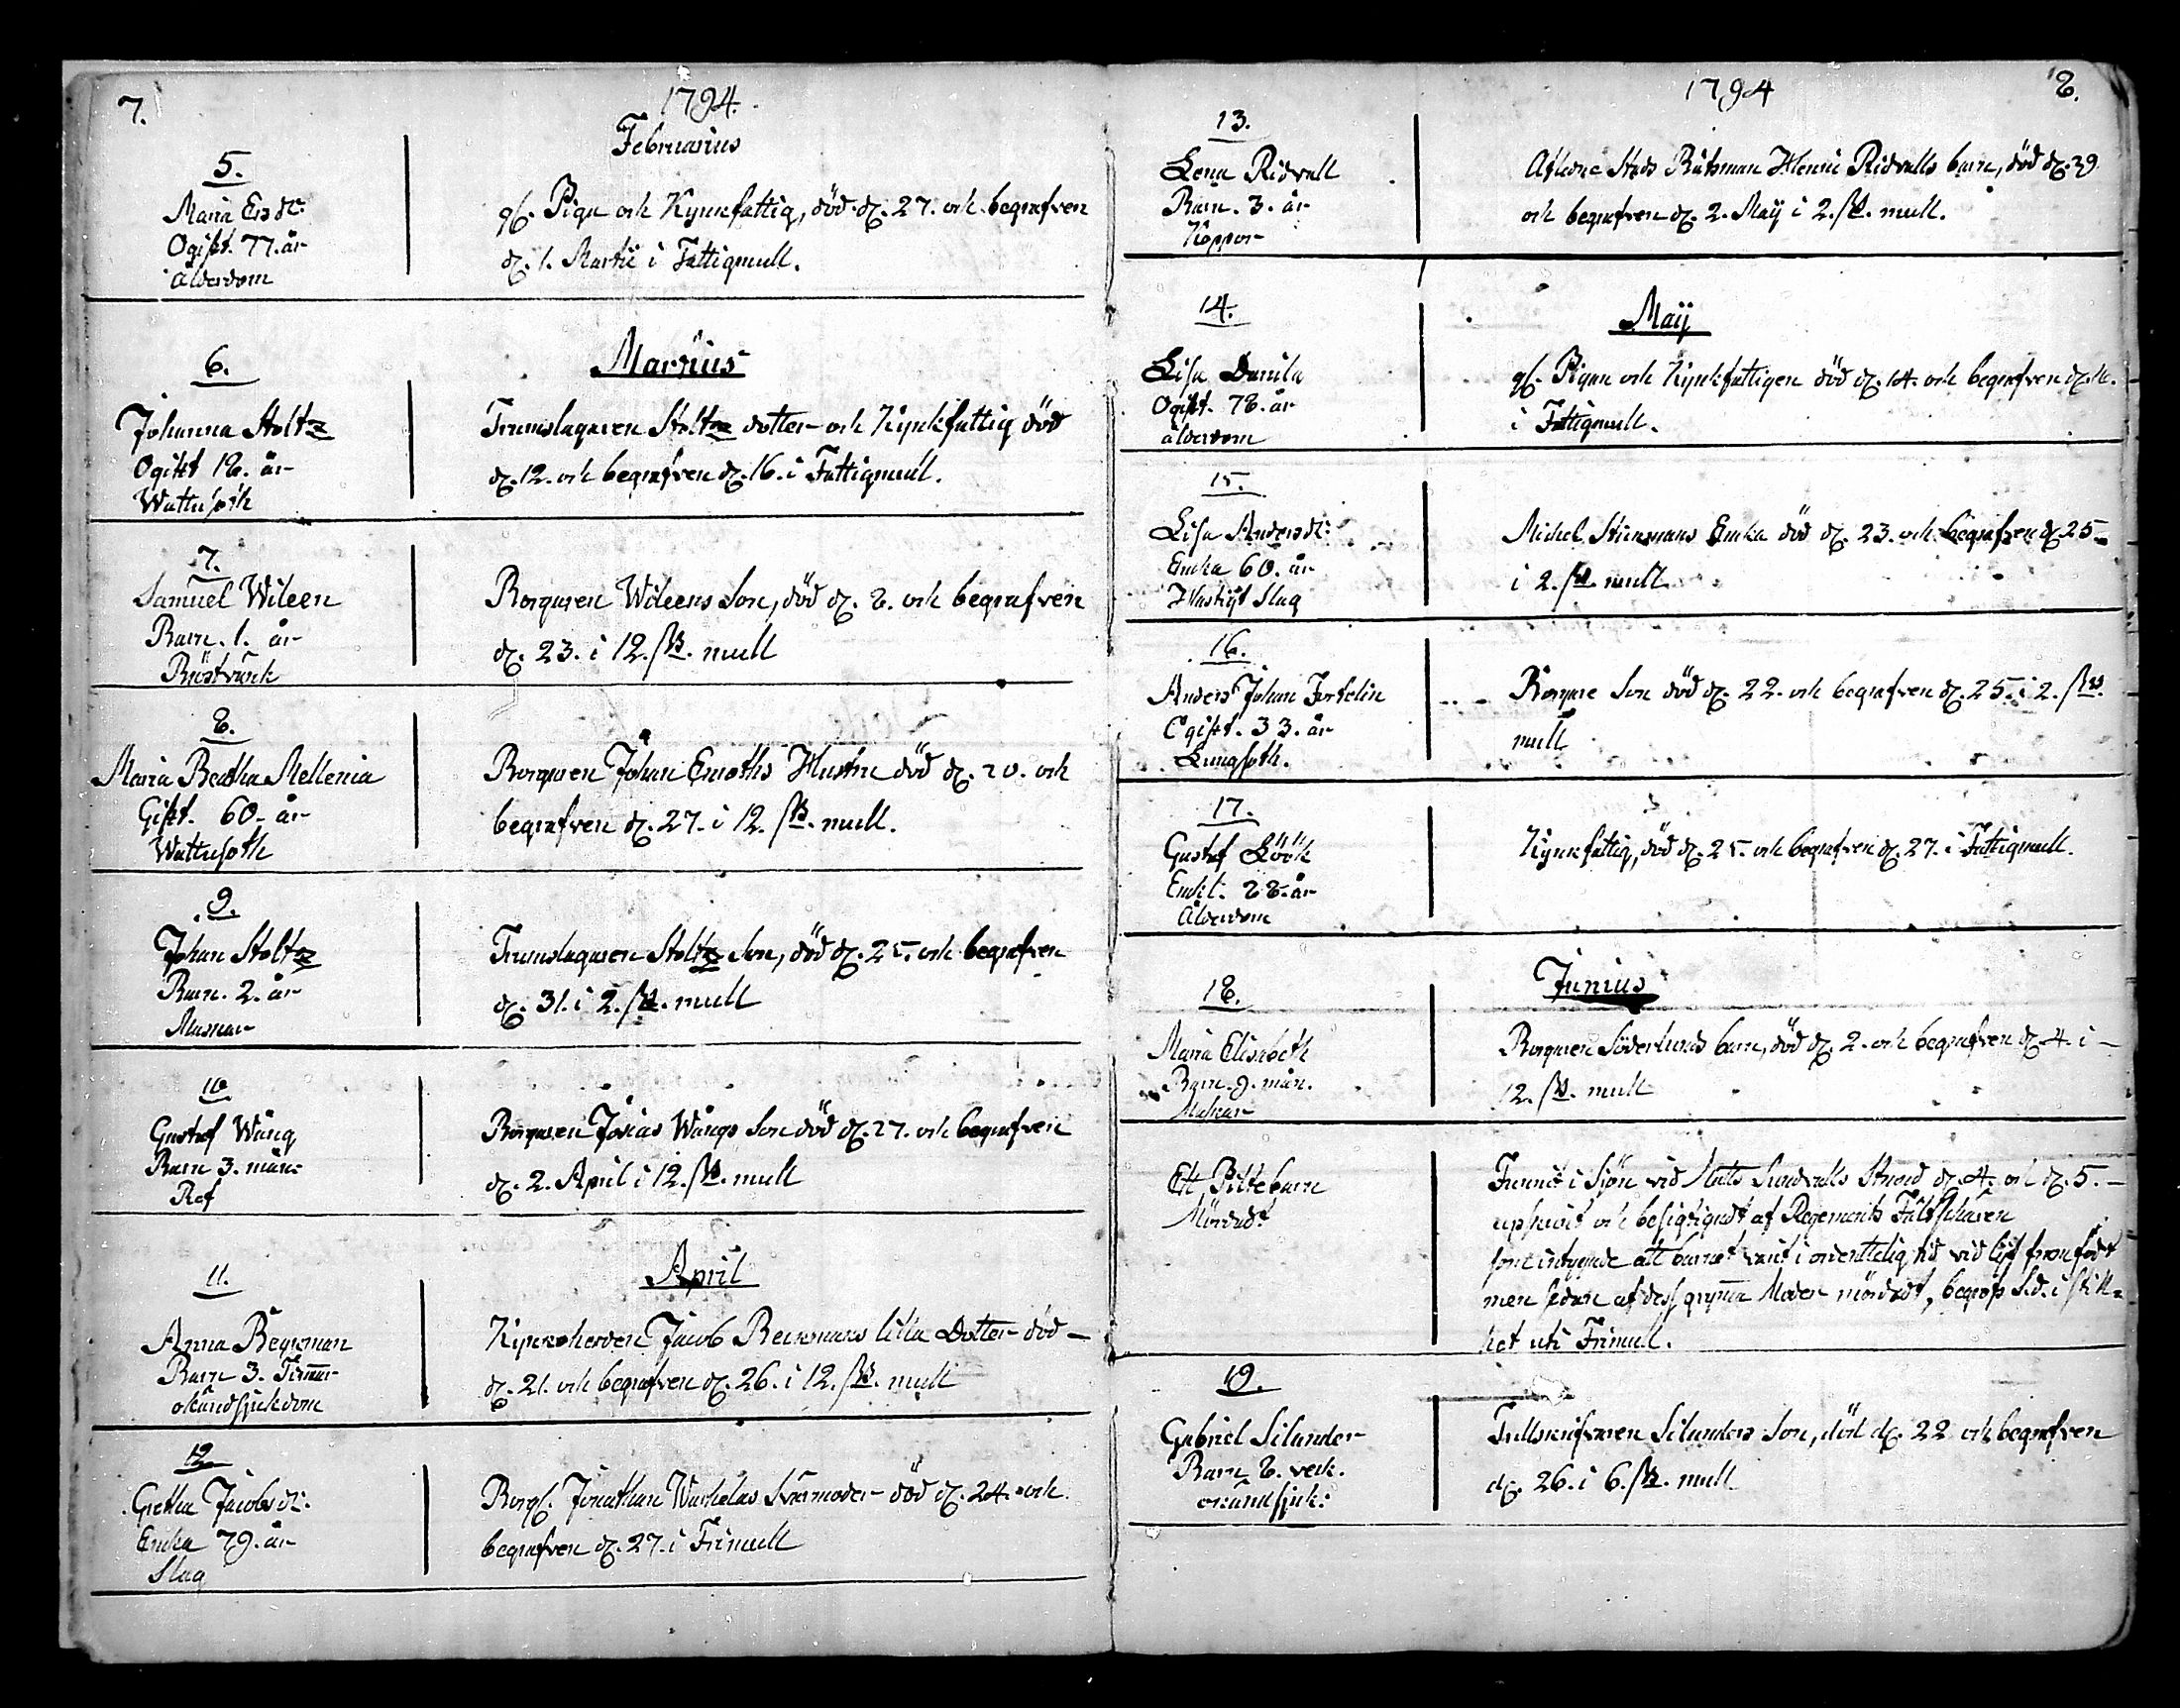 7.
1794.
Februarius
5.
Maria Ersdr:
Ogift. 77. år
ålderdom
gl. Pigan och Kyrkfattig, död d. 27. och begrafven
d. 1. Martii i Fattigmull.
6.
Martius
Johanna Stoltz
Ogift 18. år
Wattusoth
Trumslagaren Stoltz dotter och Kyrkfattig död
d. 12. och begrafven d. 16. i Fattigmull.
7.
Samuel Wileen
Barn. 1. år
Bröstvärck
Borgaren Wileens Son, död d. 8. och begrafven
d. 23. i 12. ß. mull
8.
Maria Beatha Mellenia
Gift. 60. år
Wattusoth
Borgaren Johan Emoths Hustru död d. 20. och
begrafven d. 27. i 12. ß. mull.
9.
Johan Stoltz
Barn. 2. år
Masslar
Trumslagaren Stoltz Son, död d. 25. och begrafven
d. 31. i 2. ß. mull
10
Gustaf Wång
Barn 3. mån:
Ref
Borgaren Josias Wångs Son död d. 27. och begrafven
d. 2. April i 12. ß. mull
11.
April
Anna Begrman
Barn 3. Timmar
okänd sjukdom
Jacob Becrmans lilla Dotter död
d. 21. och begrafven d. 26. i 12. ß. mull
12.
Gretha Jacobsdr:
Enka 79. år
Slag
Borgl. Jonathan Warhelas Svärmoder död d. 24. och
begrafven d. 27. i Frimull
1794
8.
13.
Lena Ridvall
Barn. 3. år
Koppor
Afledne Stads Båtsman Henric Ridvalls barn, död d. 29
och begrafven d. 2. Maij i 2. ß. mull.
14.
Maij
Lisa Danila
Ogift. 78. år
ålderdom
gl. Pigan och Kyrkfattigen död d. 14. och begrafven d. 16.
i Fattigmull.
15.
Lisa Andersdr:
Enka 60. år
Hastigt Slag
Michel Stiernmans Enka död d. 23. och begrafven d. 25
i 2. ß. mull
16.
Anders Johan Fortelin
Ogift. 33. år
Lungsoth.
Borgare Son död d. 22. och begrafven d. 25. i 2. ß.
mull
17.
Gustaf Löök
Enkl. 88. år
Ålderdom
Kyrkfattig, död d. 25. och begrafven d. 27. i Fattigmull.
18.
Junius
Maria Elisabeth
Barn. 9. mån.
Maslar
Borgaren Söderlunds barn, död d. 2. och begrafven d. 4. i
12. ß. mull
Ett Pilte barn
Mördadt
Funnit i Sjön vid Mats Sundvalls Strand d. 4. och d. 5.
upskurit och besigtigadt af Regements Fältskären
som intygade att barnet varit i ordentelig tid vid lif framfödt
men sedan af dess grymma Moder mördadt, begrofs S.d. i still
het uti Frimull.
19.
Gabriel Silander
Barn 8. veck.
okänd sjuk:
Tullskrifvaren Silanders Son, död d. 22 och begrafven
d. 26. i 6. ß. mull